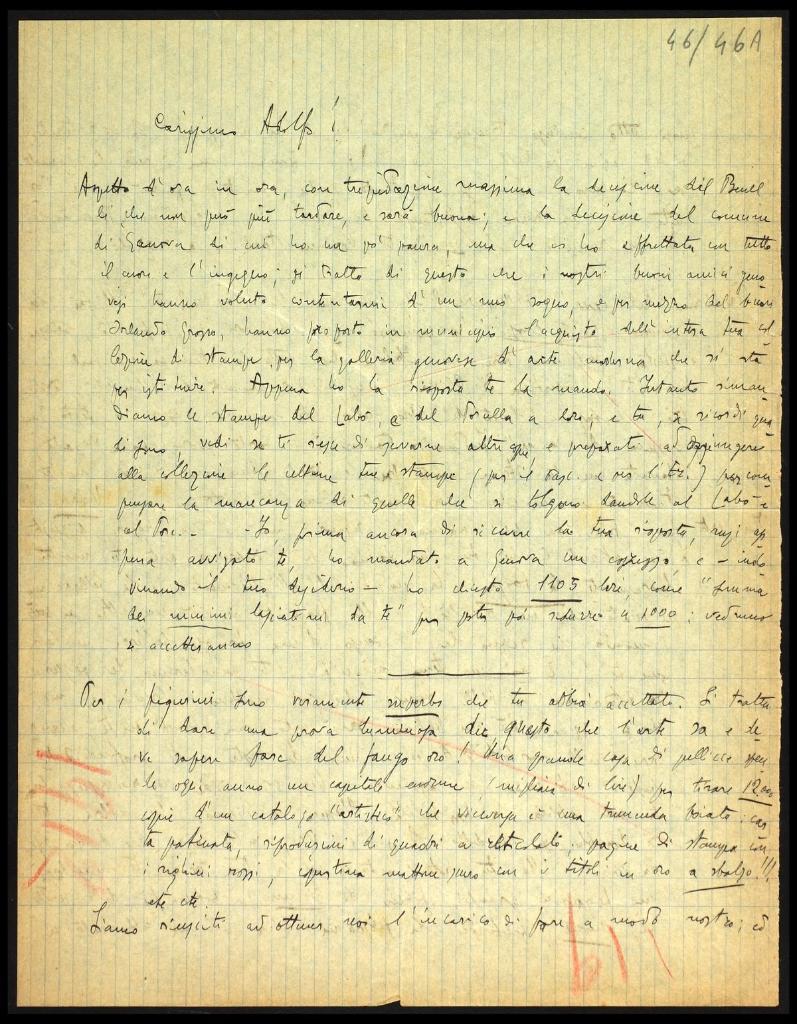 46/46A
Carissimo Adolfo!
Aspetto d'ora in ora, con trepidazione massima la decisione del Benel
li, che non può più tardare, e sarà buona; e la decisione del comune
di Genova di cui ho un po' paura, ma che io ho affrettata con tutto
il cuore e l'ingegno; si tratta di questo che i nostri buoni amici geno
vesi hanno voluto contentarmi d'un mio sogno, e per mezzo del buon
Orlando Grosso, hanno proposto in municipio l'acquisto dell'intera tua col
lezione di stampe, per la galleria genovese d'arte moderna che si sta
per istituire. Appena ho la risposta te la mando. Intanto riman
diamo le stampe del Labò, e del a loro, e tu, se ricordi qua
li sono, vedi se ti riesce di tirarne altre copie, e preparati ad aggiungere
alla collezione le ultime tue stampe (per il Pasc. e per l'Er.) per com
pensare la mancanza di quelle che si tolgono dandole al Labò e
al Tor. - - Io, prima ancora di ricevere la tua risposta, anzi ap
pena avvisato te, ho mandato a Genova un espresso, e - indo
vinando il tuo desiderio - ho chiesto 1105 lire, come "somma
dei minimi lasciatimi da te" per poter poi ridurre a 1000; vedremo
se accetteranno
Per i sono veramente superbo che tu abbia accettato. Si tratta
di dare una prova luminosa di questo che l'arte sa e de
ve sapere fare del fango oro! Una grande casa di pellicce spen
de ogni anno un capitale enorme (migliaia di lire) per tirare 12000
copie d'un catalogo "artistico" che viceversa è una tremenda boiata: car
ta patinata, riproduzioni di quadri a reticolato; pagine di stampa con
i righini rossi, copertina marrone scuro con i titoli in oro a sbalzo!!!
etc etc.
Siamo riusciti ad ottener noi l'incarico di fare a modo nostro; ed